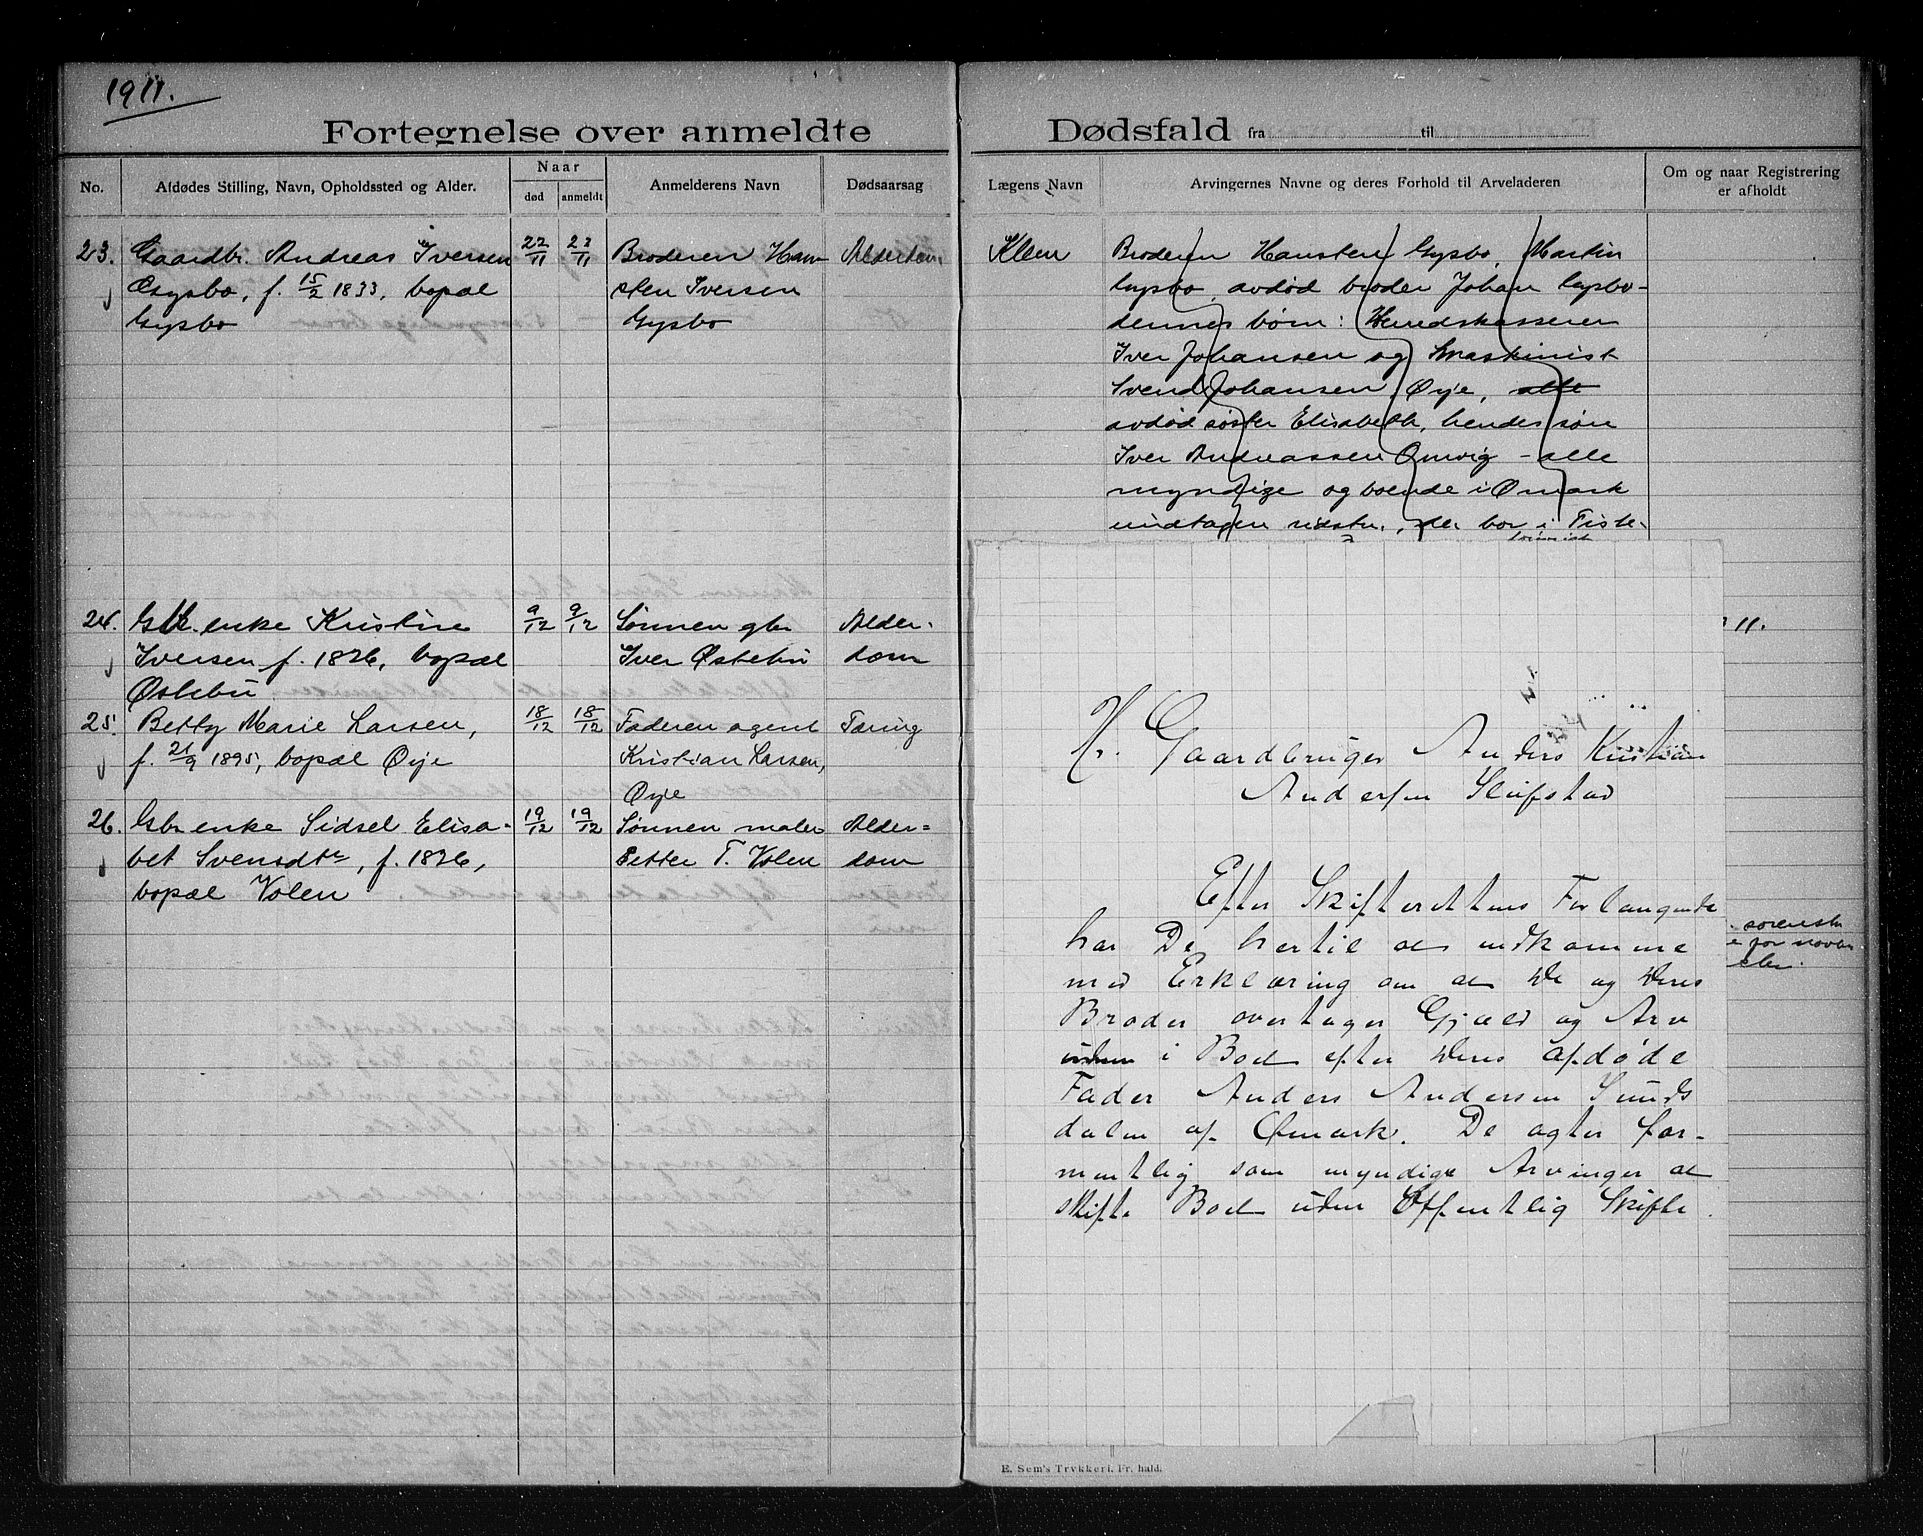 1911.
Fortegnelse over anmeldte
No.
Afdødes Stilling, Navn, Opholdssted og Alder.
Naar
død
anmeldt
Anmelderens Navn
Dødsaarsag
23.
Gaardbr. Andreas Iversen
Gysbo, f. 15/2 1833, bopæl
Gysbo
22/11
23/11
Broderen Han-
sten Iversen
Gysbo
Alderdom
24.
Gbr. enke Kristine
Iversen f. 1826, bopæl
Østebu
9/12
9/12
Sønnen gbr
Iver Østebu
Alder-
dom
25.
Betty Marie Larsen,
f. 21/9 1895, bopæl Ørje
18/12
18/12
Faderen agent
Kristian Larsen,
Ørje
Tæring
26.
Gbr enke Sidsel Elisa-
bet Svensdtr, f. 1826,
bopæl Volen
19/12
19/12
Sønnen maler
Petter T. Volen
Alder=
dom
Dødsfald fra til
Lægens Navn
Arvingernes Navne og deres Forhold til Arveladeren
Om og naar Registrering
er afholdt
Klem
Broderen Hansten Gysbo, Martin
Gysbo, avdød broder Johan Gysbo-
dennes børn: Herredskasserer
Iver Johansen og Maskinist
Svend Johansen, Ørje, alle
avdød søster Elisabeth, hendes søn
Iver Andreassen - alle
myndige og boende i Ømark
undtagen sidstn., der bor i Tiste-
11.
Hr. Gaardbruger Anders Kristian
Andersen
Efter Skifterettens Forlangende
har De hertil at indkomme
med Erklæring om at De og Deres
Broder overtager Gjæld og Arv
i Boet efter Deres afdøde
Fader Anders Andersen Sunds
dalen af Ømark. De agter for-
mentlig som myndige Arvinger at
skifte Boet uden Offentlig Skifte.
sorenskr
for novbr
E. Sem's Trykkeri, Fr. hald.